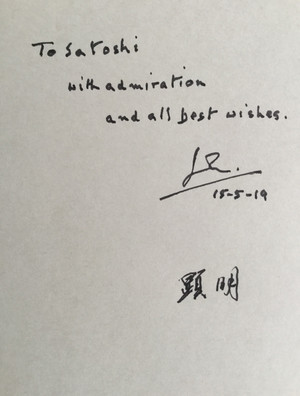 To Satoshi
with admiration
and all best wishes.
15-5-19
顕明